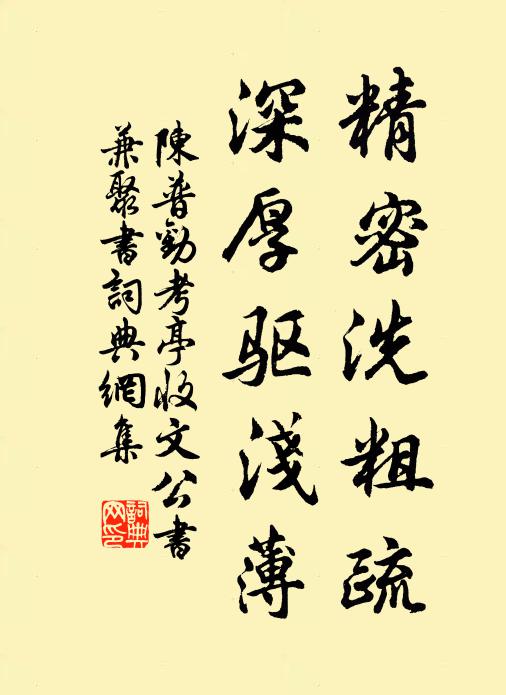 精密洗粗疏
深厚驱淺薄
陳普勸考亭收文公書
兼聚書詞典網集
詞典网印